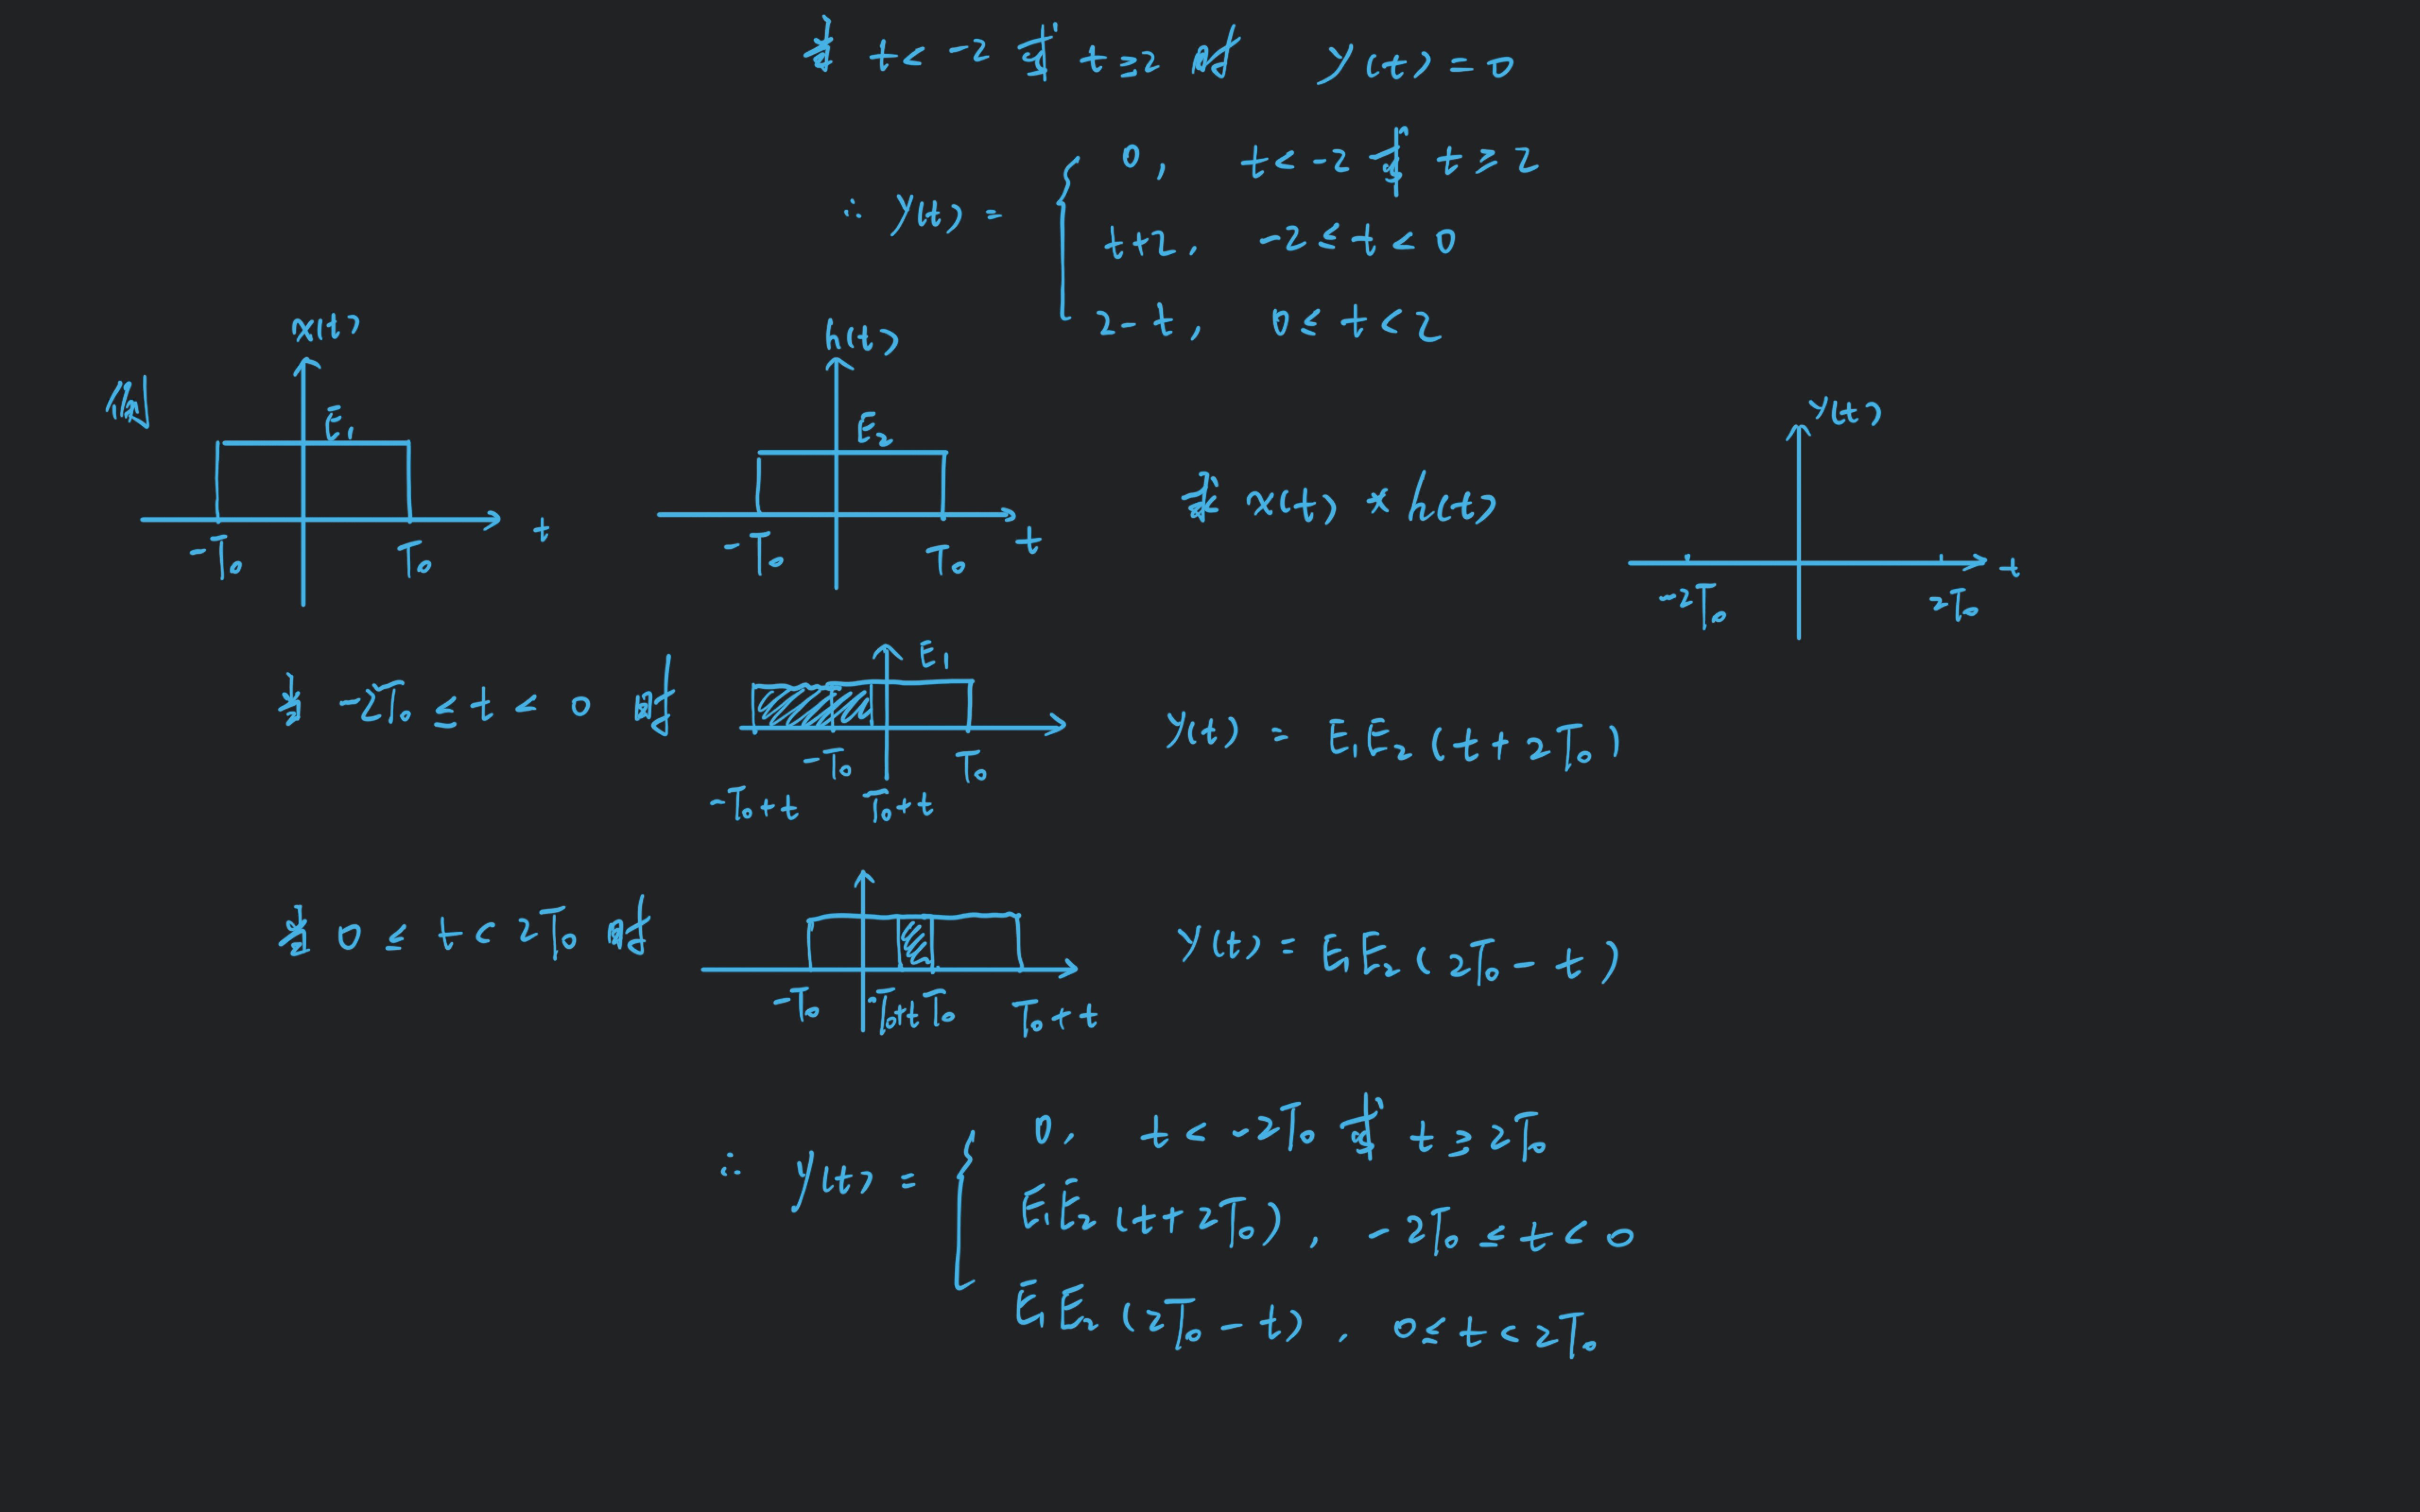 当 t < -2 或 t ≥ 2 时 y(t) = 0
∴ y(t) =
0, t < -2 或 t ≥ 2
t+2, -2 ≤ t < 0
2-t, 0 ≤ t < 2
例
x(t)
E₁
-T₀
T₀
t
h(t)
E₂
-T₀
T₀
t
求 x(t) * h(t)
y(t)
-2T₀
2T₀
t
当 -2T₀ ≤ t < 0 时
E₁
-T₀
T₀
-T₀+t
T₀+t
y(t) = E₁E₂(t+2T₀)
当 0 ≤ t < 2T₀ 时
-T₀
-T₀+t
T₀
T₀+t
y(t) = E₁E₂(2T₀-t)
∴ y(t) =
0, t < -2T₀ 或 t ≥ 2T₀
E₁E₂(t+2T₀), -2T₀ ≤ t < 0
E₁E₂(2T₀-t), 0 ≤ t < 2T₀